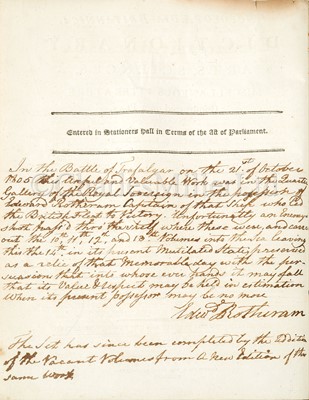 Entered in Stationers Hall in Terms of the Act of Parliament.
In the Battle of Trafalgar on the 21st. of October
1805, this Compleat & Valuable Work was in the Quarter
Gallery of the Royal Sovereign the property of
Edward Rotheram Captain of that Ship who led
the British Fleet to Victory. Unfortunately an Enemy
shot passed thro the where these were, and carried
out the 10th. 11. 12. and 13th. Volumes into the Sea leaving
this the 14th. in its present Mutilated State, presented
as a relic of that Memorable day with the per-
suasion that into whose ever hands it may fall
that its Value & respect may be held in estimation
When its present possessor may be no more
Edwd. Rotheram
The Set has since been completed by the addition
of the Vacant Volumes from A New Edition of the
same Work